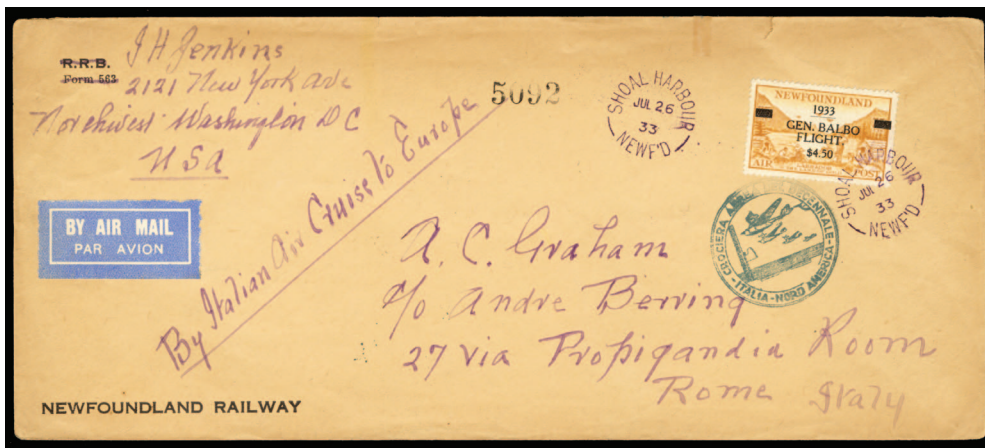 R.R.B.
Form 563
J H Jenkins
2121 New York ave
Northwest Washington D C
USA
5092
SHOAL HARBOUR
JUL 26
33
NEWF'D
NEWFOUNDLAND
1933
GEN. BALBO
FLIGHT.
$4.50
AIR POST
SHOAL HARBOUR
JUL 26
33
NEWF'D
BY AIR MAIL
PAR AVION
By Italian Air Cruise To Europe
CROCIERA DECENNALE
-ITALIA-NORD AMERICA-
A. C. Graham
c/o Andre Berring
27 via Propigandia Room
Rome Italy
NEWFOUNDLAND RAILWAY